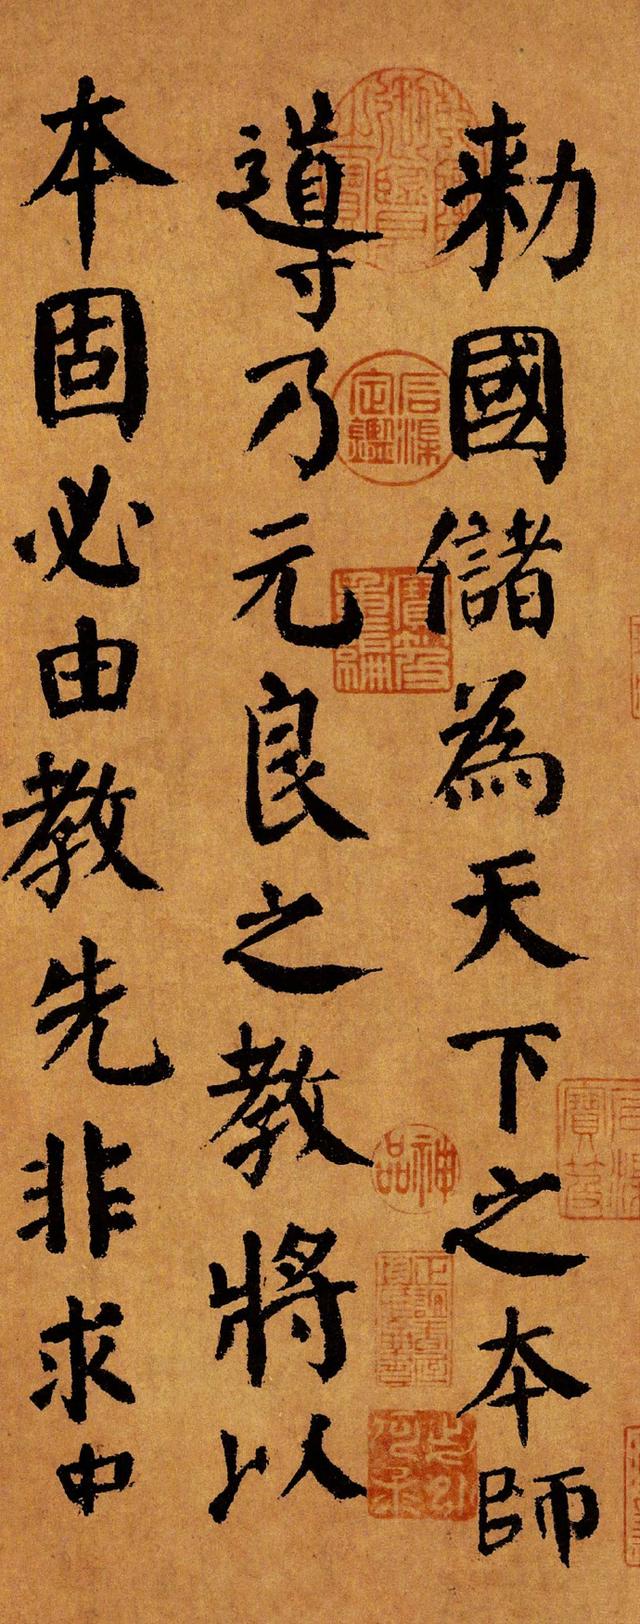 勅國儲為天下之本師
導乃元良之教將以
本固必由教先非求中
神品